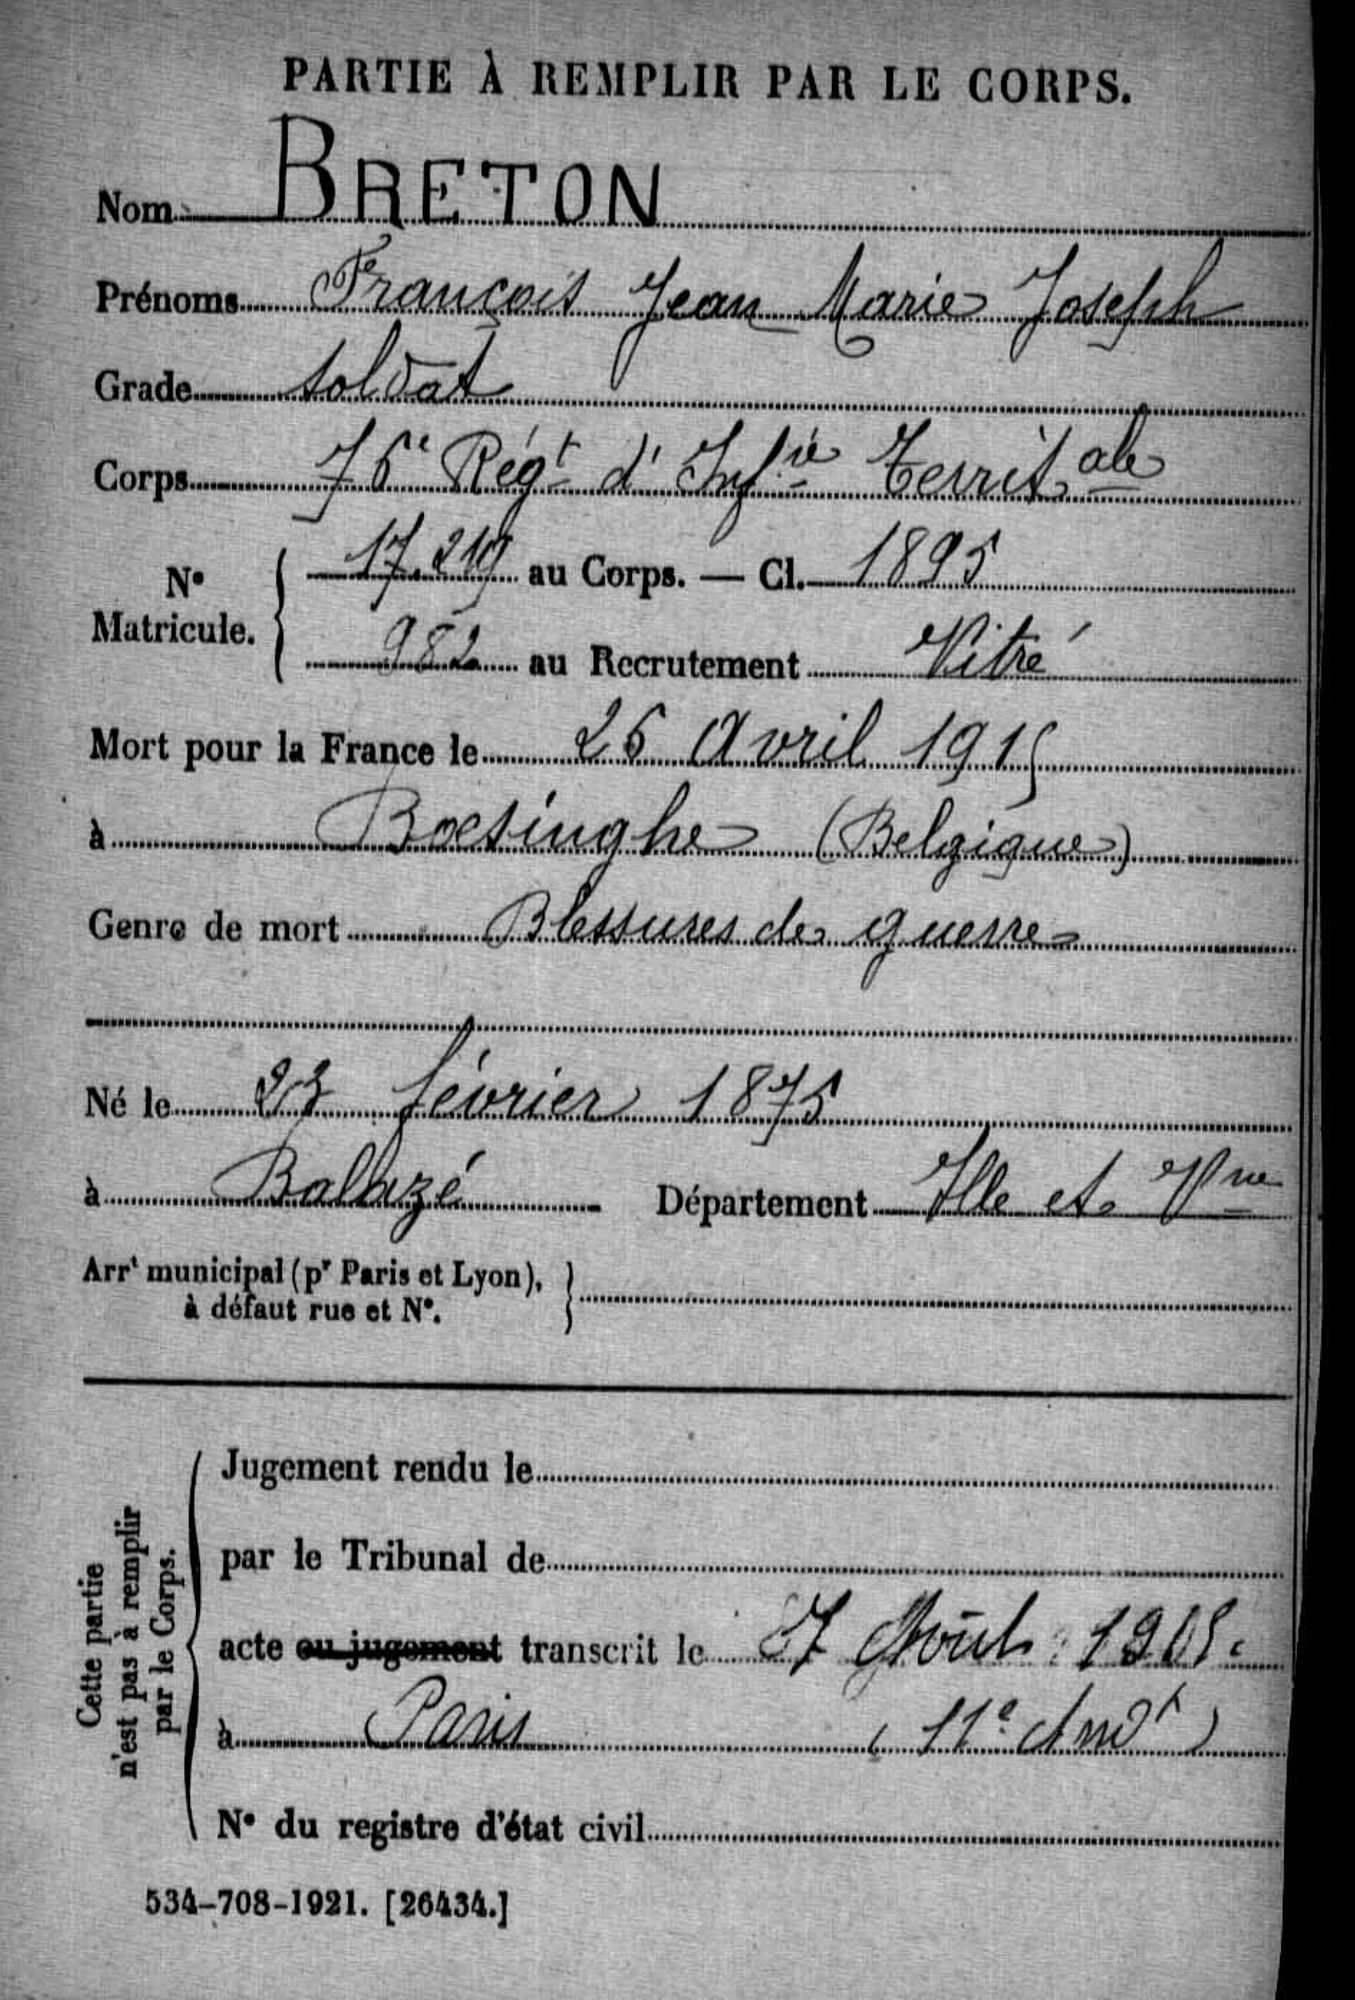 PARTIE À REMPLIR PAR LE CORPS.
Nom BRETON
Prénoms François Jean Marie Joseph
Grade soldat
Corps 76e Régt d'Infie Territale
No Matricule. { 17.219 au Corps. — Cl. 1895
982 au Recrutement Vitré
Mort pour la France le 26 Avril 1915
à Boesinghe (Belgique)
Genre de mort Blessures de guerre
Né le 23 février 1875
à Balazé Département Ille et Vne
Arrt municipal (pr Paris et Lyon),
à défaut rue et No.
Cette partie
n'est pas à remplir
par le Corps.
Jugement rendu le
par le Tribunal de
acte ou jugement transcrit le Août
à Paris (11e Arrdt)
No du registre d'état civil
534-708-1921. [26434.]